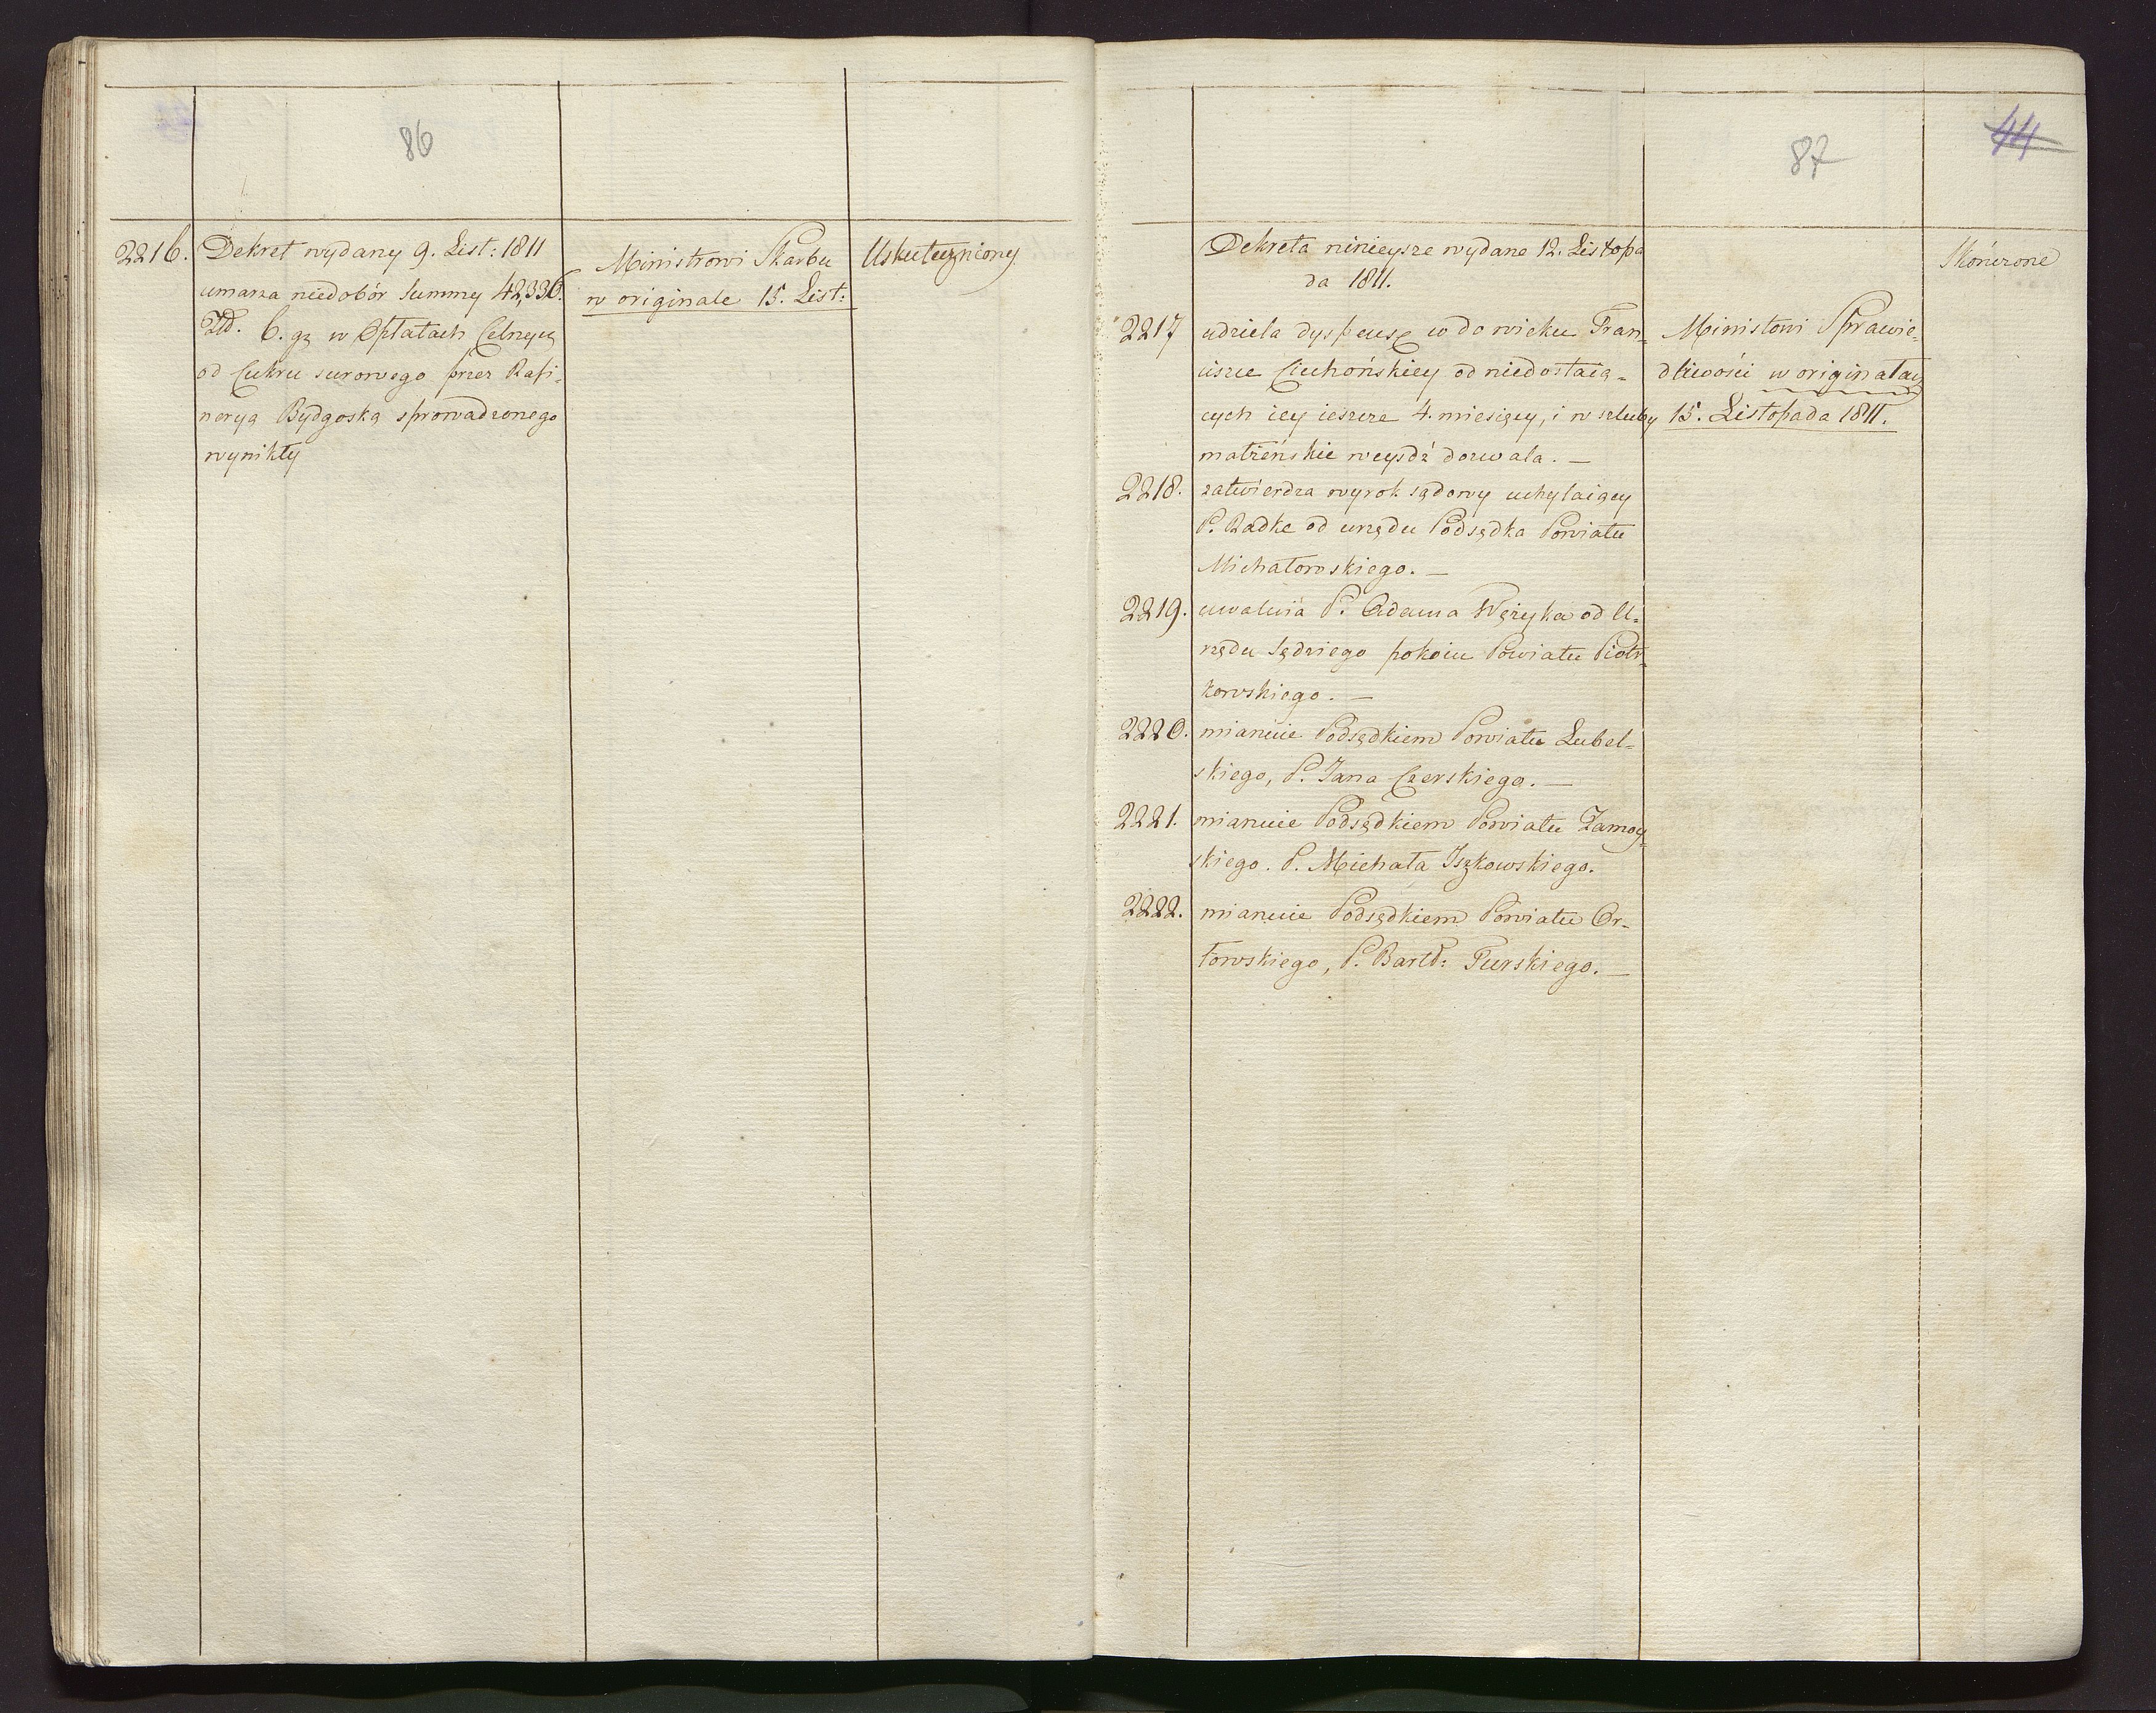 86
2216. Dekret wydany 9. List: 1811
umarza niedobór Summy 42,336.
Złł. 6. gz w Opłatach Celnych
od Cukru surowego przez Rafi-
neryą Bydgoską sprowadzonego
wynikły
Ministrowi Skarbu
w originale 15. List:
Uskuteczniony
87
44
Dekreta ninieysze wydane 12. Listopa
da 1811.
2217 udziela dyspensę w do wieku Fran-
ciszce Ciechońskiey od niedostaią-
cych iey ieszcze 4. miesięcy, i w szluby
małżeńskie weyśdź dozwala. —
2218. zatwierdza wyrok sądowy uchylaiący
P. Radke od urzędu Podsędka Powiatu
Michałowskiego. —
2219. uwalnia P. Adama Wężyka od U-
rzędu Sędziego pokoiu Powiatu Piotr-
kowskiego. —
2220. mianuie Podsędkiem Powiatu Lubel-
skiego, P. Jana Czerskiego. —
2221. mianuie Podsędkiem Powiatu Zamoy-
skiego. P. Michała Iszkowskiego.
2222. mianuie Podsędkiem Powiatu Or-
łowskiego, P. Bartł: Turskiego. —
Ministowi Sprawie-
dliwości w originałach
15. Listopada 1811.
Skończone